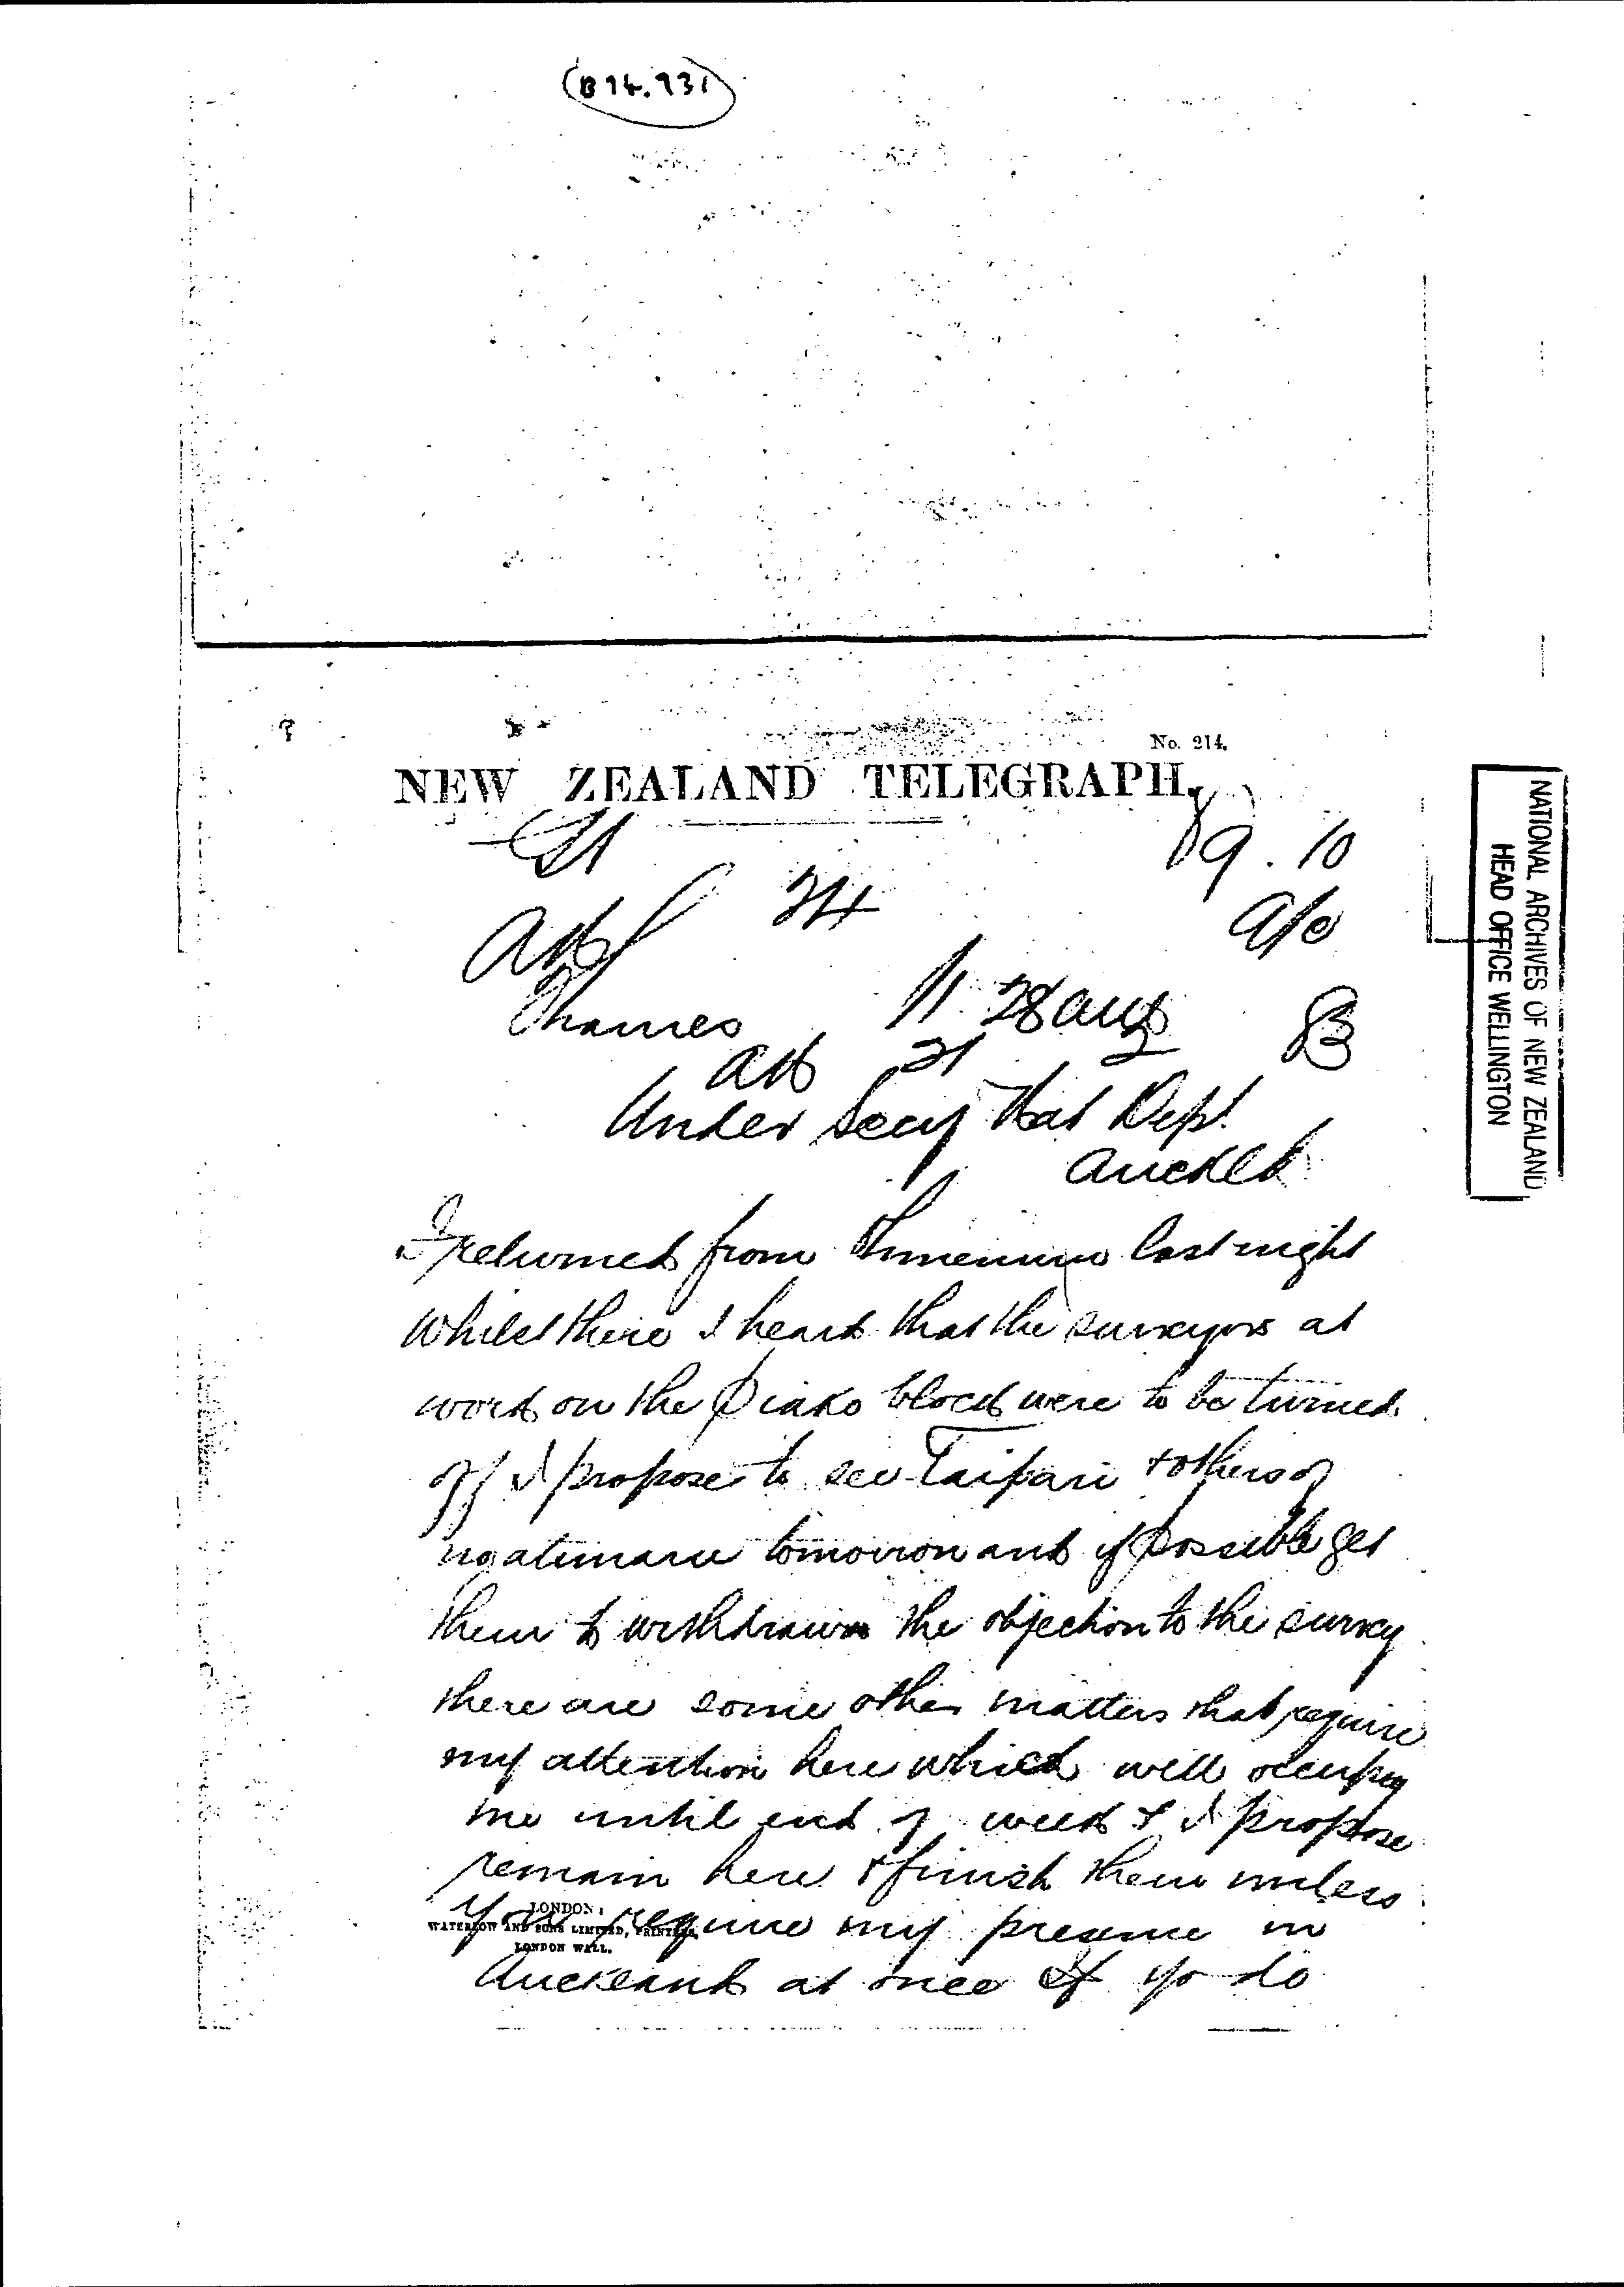 (B 74.931)
No. 214.
NEW ZEALAND TELEGRAPH.
34
9.10
Thames 11. 28 aug
21
Under Secy Nat Dept
Auckld
NATIONAL ARCHIVES OF NEW ZEALAND
HEAD OFFICE WELLINGTON
I returned from last night
Whilst there I heard that the surveyors at
work on the Piako block were to be turned
off I propose to see Taipari & others of
ngatimaru tomorrow and if possible get
them to withdraw the objection to the survey
there are some other matters that require
my attention here which will occupy
me until end of week & I propose
remain here & finish them unless
you require my presence in
LONDON:
WATERLOW AND SONS LIMITED, PRINTERS,
LONDON WALL.
Auckland at once If yo do